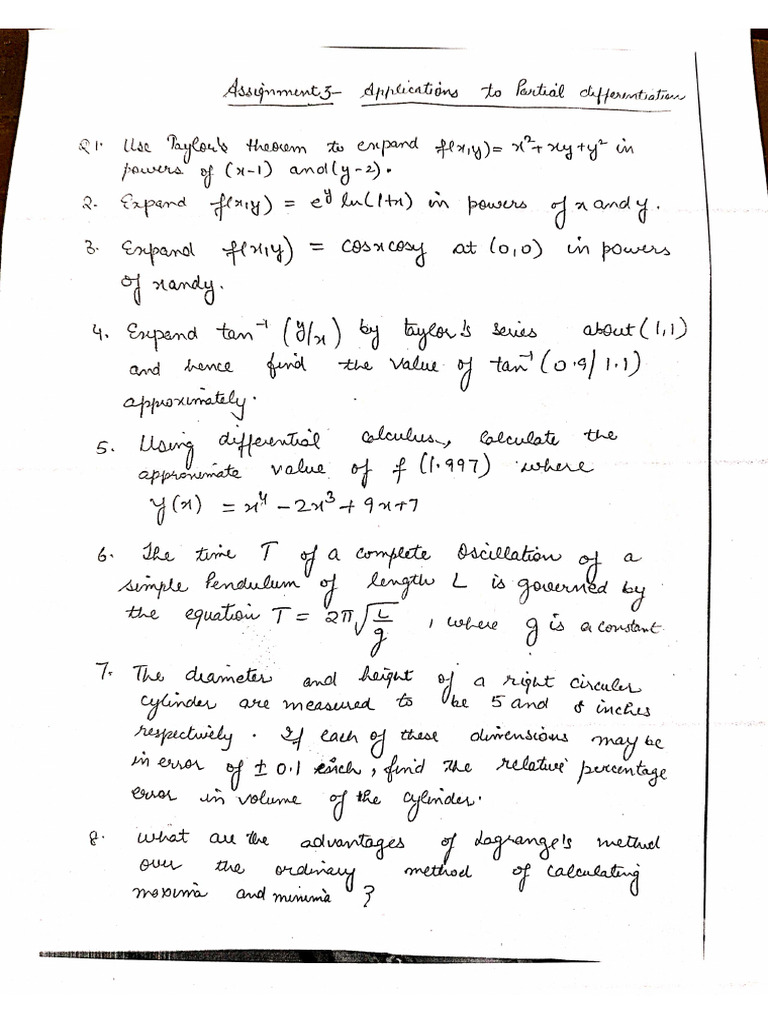 Assignment 3- Applications to Partial differentiation
Q1. Use Taylor's theorem to expand f(x,y) = x² + xy + y² in
powers of (x-1) and (y-2).
2. Expand f(x,y) = e^y ln(1+x) in powers of x and y.
3. Expand f(x,y) = cosx cosy at (0,0) in powers
of x and y.
4. Expend tan⁻¹ (y/x) by taylor's series about (1,1)
and hence find the value of tan⁻¹ (0.9/1.1)
approximately.
5. Using differential calculus, calculate the
approximate value of f (1.997) where
y(x) = x⁴ - 2x³ + 9x + 7
6. The time T of a complete oscillation of a
simple Pendulum of length L is governed by
the equation T = 2π√(L/g) , where g is a constant
7. The diameter and height of a right circuler
cylinder are measured to be 5 and 8 inches
respectively. If each of these dimensions may be
in error of ± 0.1 inch, find the relative percentage
error in volume of the cylinder.
8. what are the advantages of Lagrange's method
over the ordinary method of calculating
maxima and minima ?